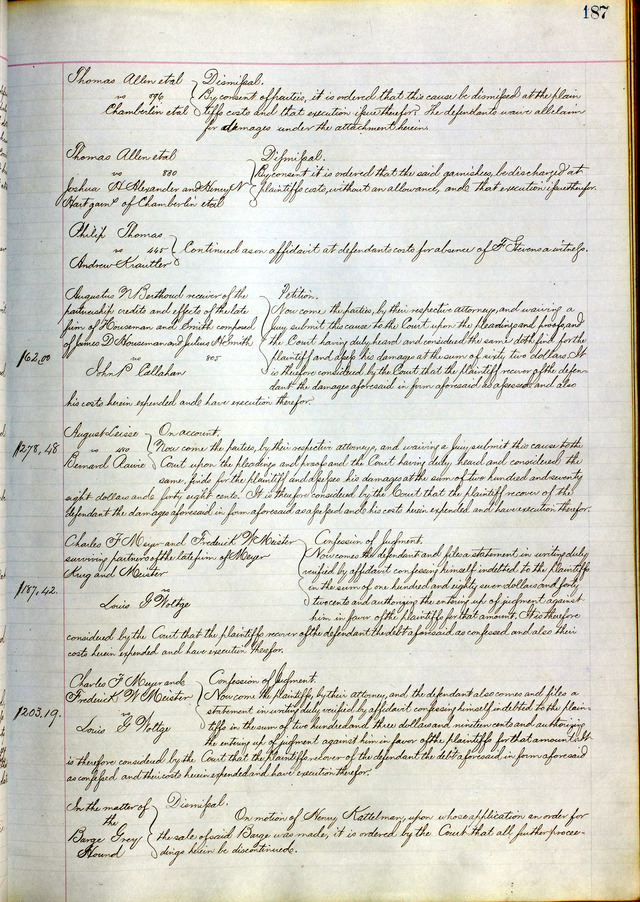 187
Thomas Allen etal Dismissal.
vs 896 By consent of parties, it is ordered that this cause be dismissed at the plain
Chamberlin etal tiffs costs and that execution issue therefor. The defendants waive all claim
for damages under the attachment herein.
Thomas Allen etal Dismissal.
vs 880 By consent it is ordered that the said garnishees, be discharged at
Joshua H Alexander and Henry N plaintiffs costs, without an allowance, and that execution issue therefor.
Hart garns of Chamberlin etal
Philip Thomas
vs 445 Continued as on affidavit at defendants costs for absence of F Stevens a witness.
Andrew Krautler
Augustus N Berthoud receiver of the Petition.
partnership credits and effects of the late Now come the parties, by their respective attorneys, and waiving a
firm of Houseman and Smith composed jury submit this cause to the Court upon the pleadings and proofs, and
of James D Houseman and Julius H Smith the Court having duly heard and considered the same doth find for the
$62,00 vs 805 plaintiff and assess his damages at the sum of sixty two dollars. It
John P Callahan is therefore considered by the Court that the plaintiff recover of the defen-
dant the damages aforesaid in form aforesaid as assessed and also
his costs herein expended and have execution therefor.
August Leisse On account.
$278,48 vs 480 Now come the parties, by their respective attorneys, and waiving a jury submit this cause to the
Bernard Rauie Court upon the pleadings and proof and the Court having duly heard and considered the
same, finds for the plaintiff, and assesses his damages at the sum of two hundred and seventy
eight dollars and forty eight cents. It is therefore considered by the Court that the plaintiff recover of the
defendant the damages aforesaid in form aforesaid as assessed and his costs herein expended and have execution therefor.
Charles F Meyer and Frederick W Meister Confession of Judgment.
surviving partners of the late firm of Meyer Now comes the defendant and files a statement in writing duly
Krug and Meister verified by affidavit confessing himself indebted to the plaintiffs
$187,42. vs in the sum of one hundred and eighty seven dollars and forty
Louis G Woltge two cents and authorizing the entering up of judgment against
him in favor of the plaintiffs for that amount. It is therefore
considered by the Court that the plaintiffs recover of the defendant the debt aforesaid as confessed, and also their
costs herein expended and have execution therefor.
Charles F Meyer and Confession of Judgment.
Frederick W Meister Now come the plaintiffs, by their attorney, and the defendant also comes and files a
$203.19. vs statement in writing duly verified by affidavit confessing himself indebted to the plain-
Louis G Woltge tiffs in the sum of two hundred and three dollars and nineteen cents and authorizing
the entering up of judgment against him in favor of the plaintiffs for that amount. It
is therefore considered by the Court that the plaintiffs recover of the defendant the debt aforesaid in form aforesaid
as confessed and their costs herein expended and have execution therefor.
In the matter of Dismissal.
the On motion of Henry Kattelman, upon whose application an order for
Barge Grey the sale of said Barge was made, it is ordered by the Court that all further procee-
Hound dings herein be discontinued.